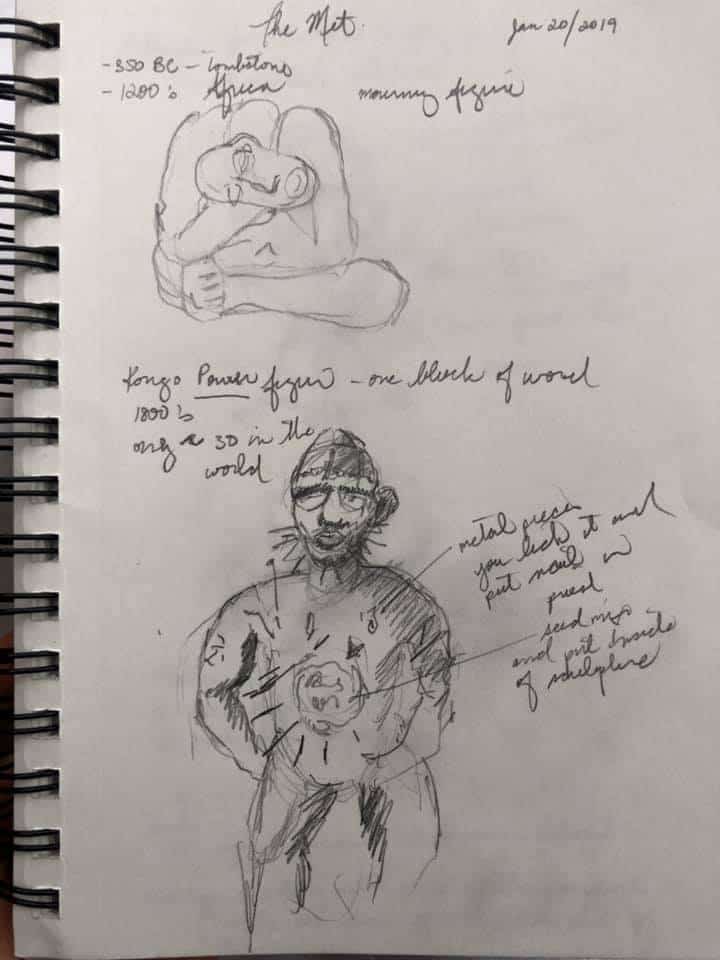 The Met.
Jan 20/2019
- 350 BC - Tombstone
- 1200's Africa
mourning figure
Kongo Power figure - one block of wood
1800's
only ~ 30 in the
world
metal pieces
you lick it and
put nail in
seed mixo
and put inside
of sculpture